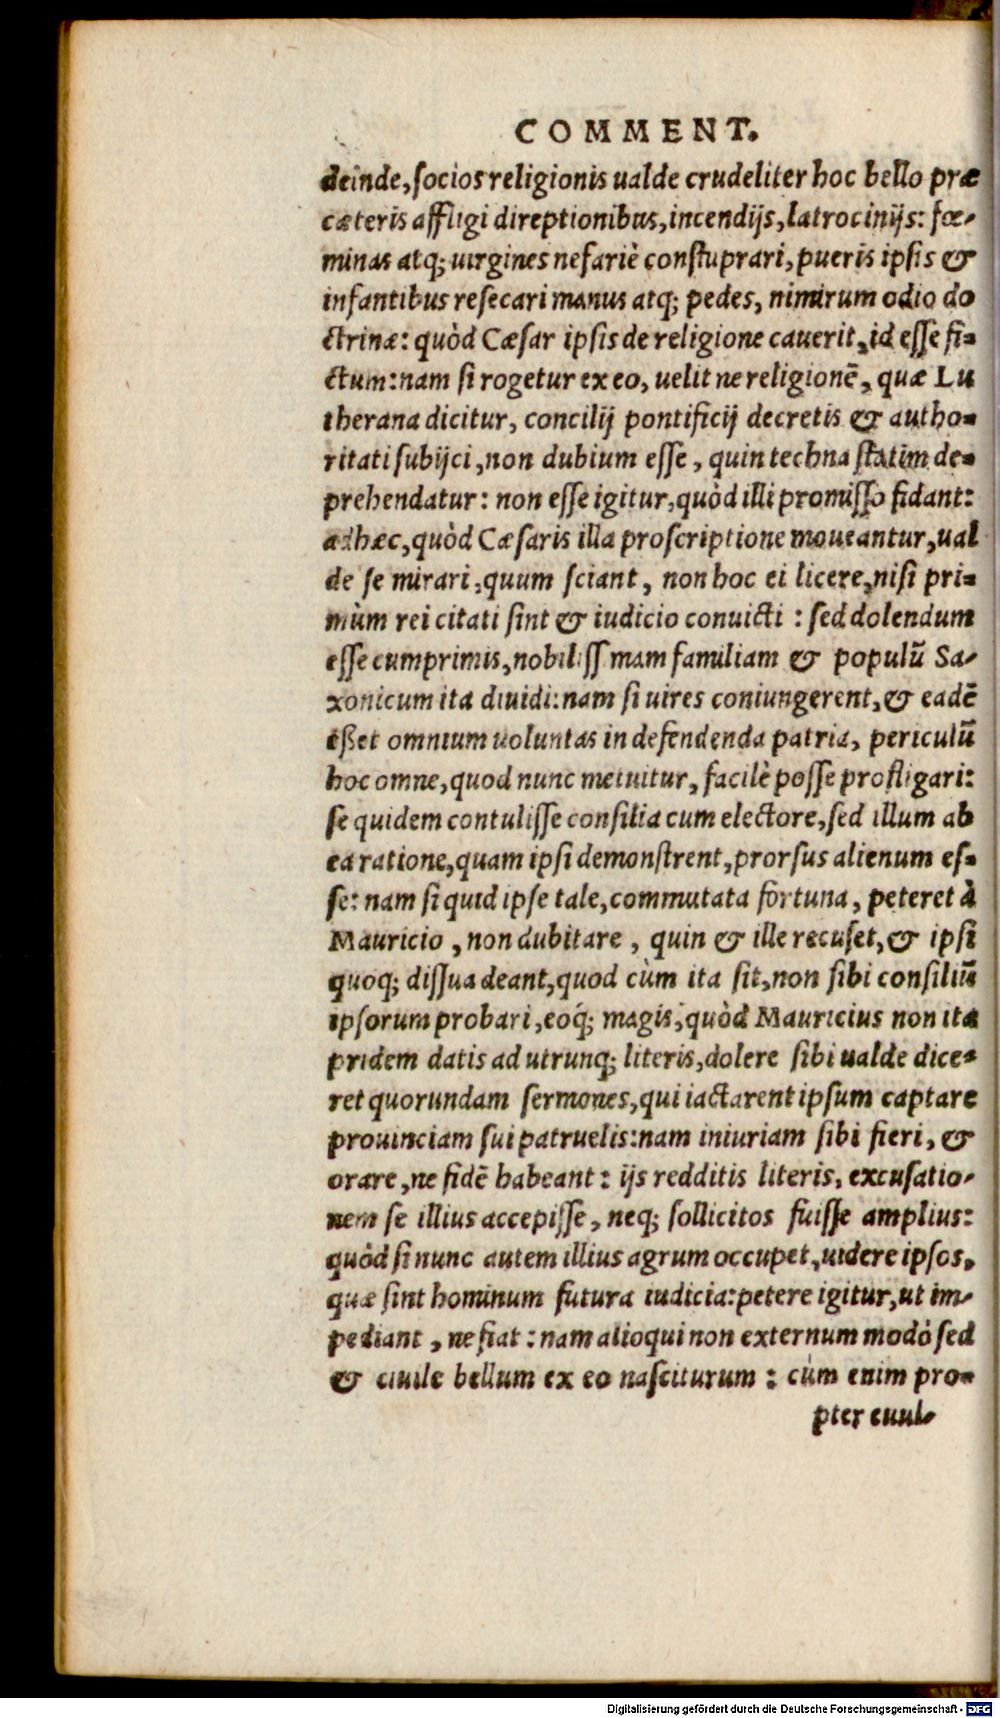 COMMENT.
deinde, socios religionis ualde crudeliter hoc bello præ
cæteris affligi direptionibus, incendijs, latrocinijs: fœ-
minas atq; uirgines nefariè constuprari, pueris ipsis &
infantibus resecari manus atq; pedes, nimirum odio do
ctrinæ: quòd Cæsar ipsis de religione cauerit, id esse fi-
ctum: nam si rogetur ex eo, uelit ne religionẽ, quæ Lu
therana dicitur, concilij pontificij decretis & autho-
ritati subijci, non dubium esse, quin techna statim de-
prehendatur: non esse igitur, quòd illi promisso fidant:
adhæc, quòd Cæsaris illa proscriptione moueantur, ual
de se mirari, quum sciant, non hoc ei licere, nisi pri-
mùm rei citati sint & iudicio conuicti: sed dolendum
esse cumprimis, nobilissimam familiam & populũ Sa-
xonicum ita diuidi: nam si uires coniungerent, & eadẽ
eßet omnium uoluntas in defendenda patria, periculũ
hoc omne, quod nunc metuitur, facilè posse profligari:
se quidem contulisse consilia cum electore, sed illum ab
ea ratione, quam ipsi demonstrent, prorsus alienum es-
se: nam si quid ipse tale, commutata fortuna, peteret à
Mauricio, non dubitare, quin & ille recuset, & ipsi
quoq; dissuadeant, quod cùm ita sit, non sibi consiliũ
ipsorum probari, eoq́; magis, quòd Mauricius non ita
pridem datis ad utrunq; literis, dolere sibi ualde dice-
ret quorundam sermones, qui iactarent ipsum captare
prouinciam sui patruelis: nam iniuriam sibi fieri, &
orare, ne fidẽ habeant: ijs redditis literis, excusatio-
nem se illius accepisse, neq; sollicitos fuisse amplius:
quòd si nunc autem illius agrum occupet, uidere ipsos,
quæ sint hominum futura iudicia: petere igitur, ut im-
pediant, ne fiat: nam alioqui non externum modò sed
& ciuile bellum ex eo nasciturum: cùm enim pro-
pter euul-
Digitalisierung gefördert durch die Deutsche Forschungsgemeinschaft - DFG